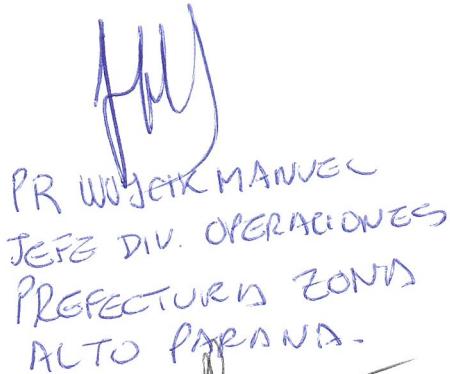 PR WUJCIK MANUEL
JEFE DIV. OPERACIONES
PREFECTURA ZONA
ALTO PARANA.